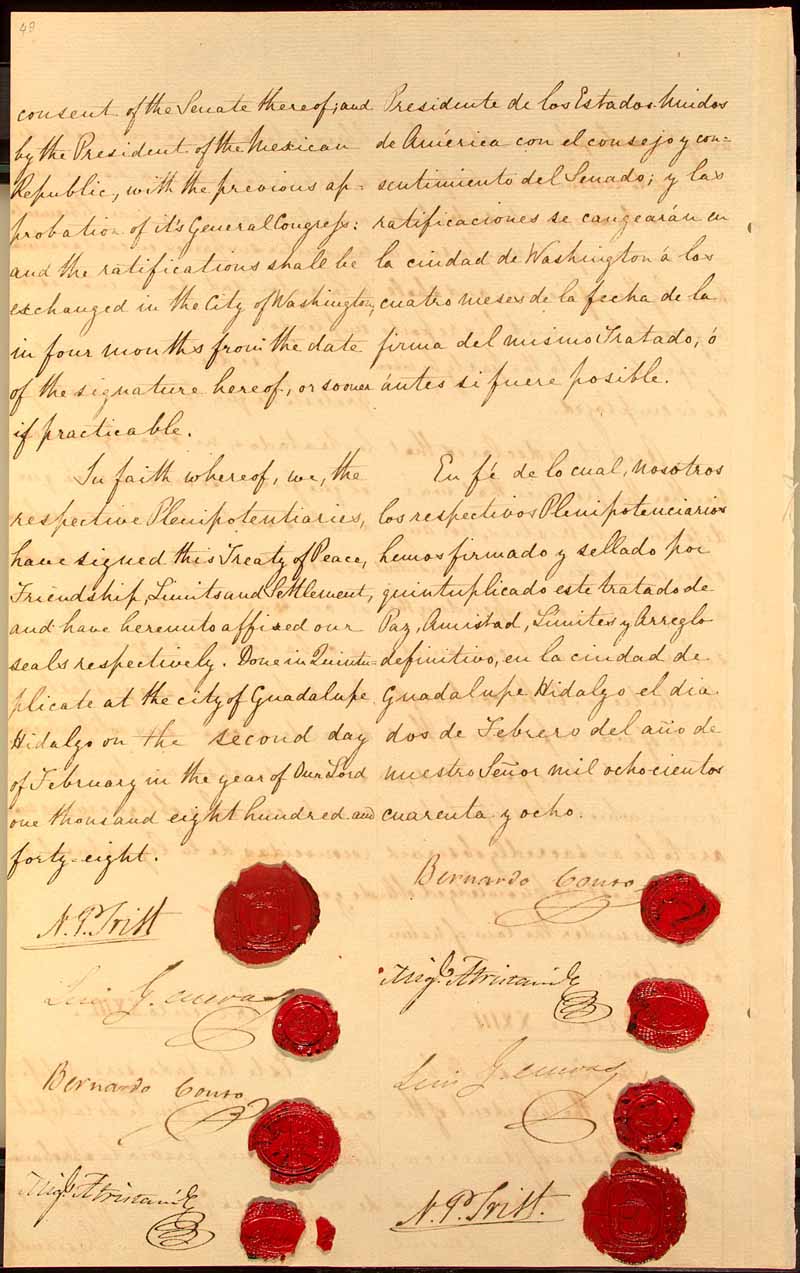 49
consent of the Senate thereof; and
by the President of the Mexican
Republic, with the previous ap=
probation of it's General Congress:
and the ratifications shall be
exchanged in the City of Washington,
in four months from the date
of the signature hereof, or sooner
if practicable.
In faith whereof, we, the
respective Plenipotentiaries,
have signed this Treaty of Peace,
Friendship, Limits and Settlement,
and have hereunto affixed our
seals respectively. Done in Quintu=
plicate at the city of Guadalupe
Hidalgo on the second day
of February in the year of Our Lord
one thousand eight hundred and
forty-eight.
N. P. Trist
Luis G. Cuevas
Bernardo Couto
Migl. Atristain
Presidente de los Estados Unidos
de América con el consejo y con=
sentimiento del Senado; y las
ratificaciones se cangearán en
la ciudad de Washington á los
cuatro meses de la fecha de la
firma del mismo Tratado, ó
ántes si fuere posible.
En fé de lo cual, nosotros
los respectivos Plenipotenciarios
hemos firmado y sellado por
quintuplicado este tratado de
Paz, Amistad, Limites y Arreglo
definitivo, en la ciudad de
Guadalupe Hidalgo el dia
dos de Febrero del año de
nuestro Señor mil ochocientos
cuarenta y ocho.
Bernardo Couto
Migl. Atristain
Luis G. Cuevas
N. P. Trist.